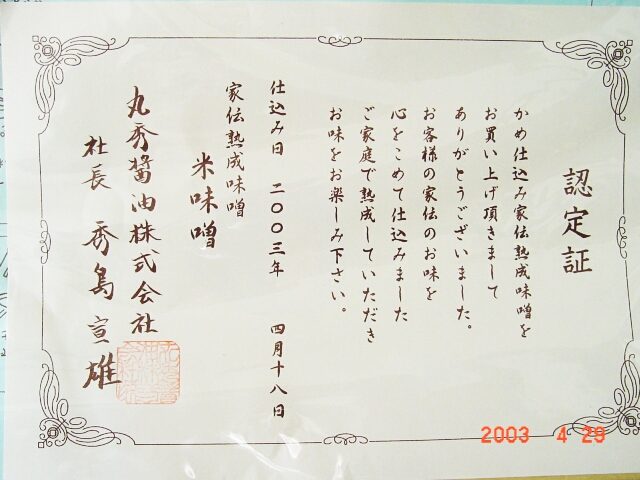 認定証
かめ仕込み家伝熟成味噌を
お買い上げ頂きまして
ありがとうございました。
お客様の家伝のお味を
心をこめて仕込みました
ご家庭で熟成していただき
お味をお楽しみ下さい。
仕込み日 二〇〇三年 四月十八日
家伝熟成味噌
米味噌
丸秀醤油株式会社
社長 秀島宣雄
2003 4 29